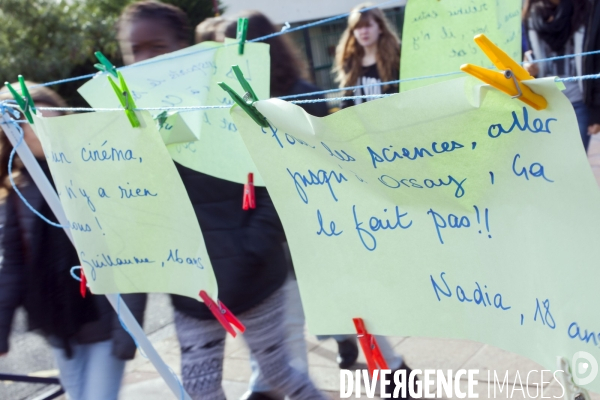 un cinéma,
n'y a rien
nous !
Guillaume, 16ans
Pour les sciences, aller
jusqu'à Orsay, Ga
le fait pas!!
Nadia, 18 ans
DIVERGENCE IMAGES .COM